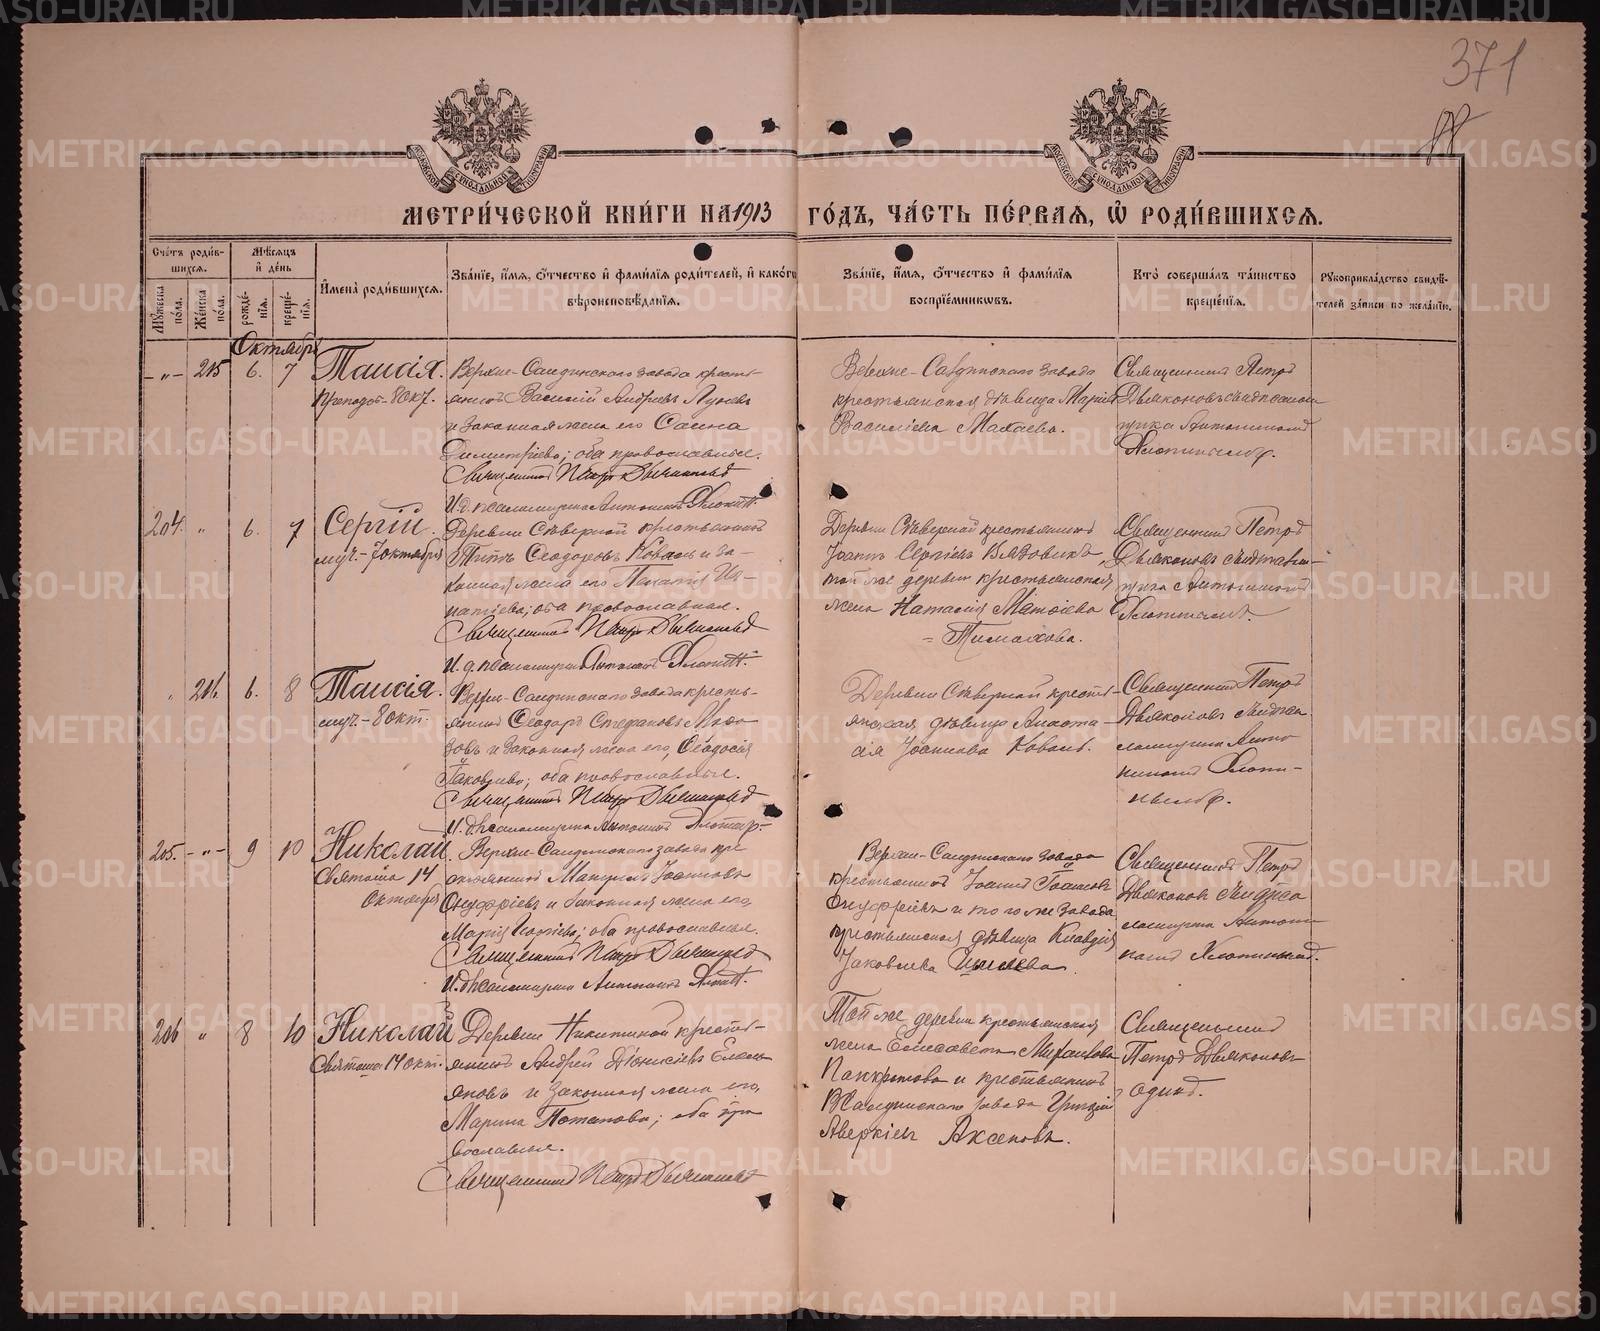 371
МЕТРИ́ЧЕСКОЙ КНИ́ГИ НА 1913 ГО́ДЪ, ЧА́СТЬ ПЕ́РВАЯ, Ѽ РОДИ́ВШИХСЯ.
Сче́тъ роди́в-
шихся.
Мꙋ́жеска по́ла.
Же́нска по́ла.
Мѣ́сяцъ и де́нь
рожде́-
нїя.
креще́-
нїя.
И҆мена̀ роди́вшихся.
Зва́нїе, и҆́мя, ѻ҆́тчество и҆ фами́лїя роди́телей, и҆ како́гѡ
вѣроисповѣ́данїя.
Зва́нїе, и҆́мя, ѻ҆́тчество и҆ фами́лїя
воспрїе́мникѡвъ.
Кто̀ соверша́лъ та́инство
креще́нїя.
Рꙋкоприкла́дство свидѣ́-
телей за́писи по жела́нїю.
Октябрь
-"- 215 6. 7 Таисія.
препод. - 8 окт.
Верхне-Салдинскаго завода кресть-
янинъ Василій Андреевъ Луневъ
и законная жена его
Димитріева; оба православные.
Священникъ Петръ Дьяконовъ
И.д. псаломщика Антонинъ
Верхне-Салдинскаго завода
крестьянская дѣвица Марія
Васильева Махаева.
Священникъ Петръ
Дьяконовъ съ и.д. псаломщика
Антониномъ
204. " 6. 7 Сергій.
муч. - 7 октября
Деревни Сѣверной крестьянинъ
Титъ Ѳеодоровъ Коваль и за-
конная жена его Пелагія Иг-
натіева; оба православные.
Священникъ Петръ Дьяконовъ
И.д. псаломщика Антонинъ
Деревни Сѣверной крестьянинъ
Іоаннъ Сергіевъ Вязовикъ,
той же деревни крестьянская
жена Наталія Матѳіева
Тимохова.
Священникъ Петръ
Дьяконовъ съ и.д. псалом-
щика Антониномъ
" 216. 6. 8 Таисія.
муч. - 8 окт.
Верхне-Салдинскаго завода кресть-
янинъ Ѳеодоръ Стефановъ
и законная жена его, Ѳеодосія
Іаковлева; оба православные.
Священникъ Петръ Дьяконовъ
И.д. псаломщика Антонинъ
Деревни Сѣверной кресть-
янская дѣвица Анаста-
сія Іоаннова Коваль.
Священникъ Петръ
Дьяконовъ съ и.д. пса-
ломщика Анто-
ниномъ
205. -"- 9 10 Николай.
Святоша 14
Октября
Верхне-Салдинскаго завода кре-
стьянинъ Мануилъ Іоанновъ
Онуфріевъ и законная жена его,
Марія Георгіева; оба православные.
Священникъ Петръ Дьяконовъ
И.д. псаломщика Антонинъ
Верхне-Салдинскаго завода
крестьянинъ Іоаннъ Іоанновъ
Онуфріевъ и того же завода
крестьянская дѣвица Клавдія
Іаковлева
Священникъ Петръ
Дьяконовъ съ и.д. пса-
ломщика Антони-
номъ
206 " 8 10 Николай
Святоша 14 окт.
Деревни Никитиной кресть-
янинъ Андрей Діонисіевъ Емель-
яновъ и законная жена его,
Марина Потапова; оба пра-
вославные.
Священникъ Петръ Дьяконовъ
Той же деревни крестьянская
жена Елисавета Михаилова
Панкратова и крестьянинъ
В. Салдинскаго завода
Аверкіевъ Аксеновъ.
Священникъ
Петръ Дьяконовъ
одинъ.
METRIKI.GASO-URAL.RU